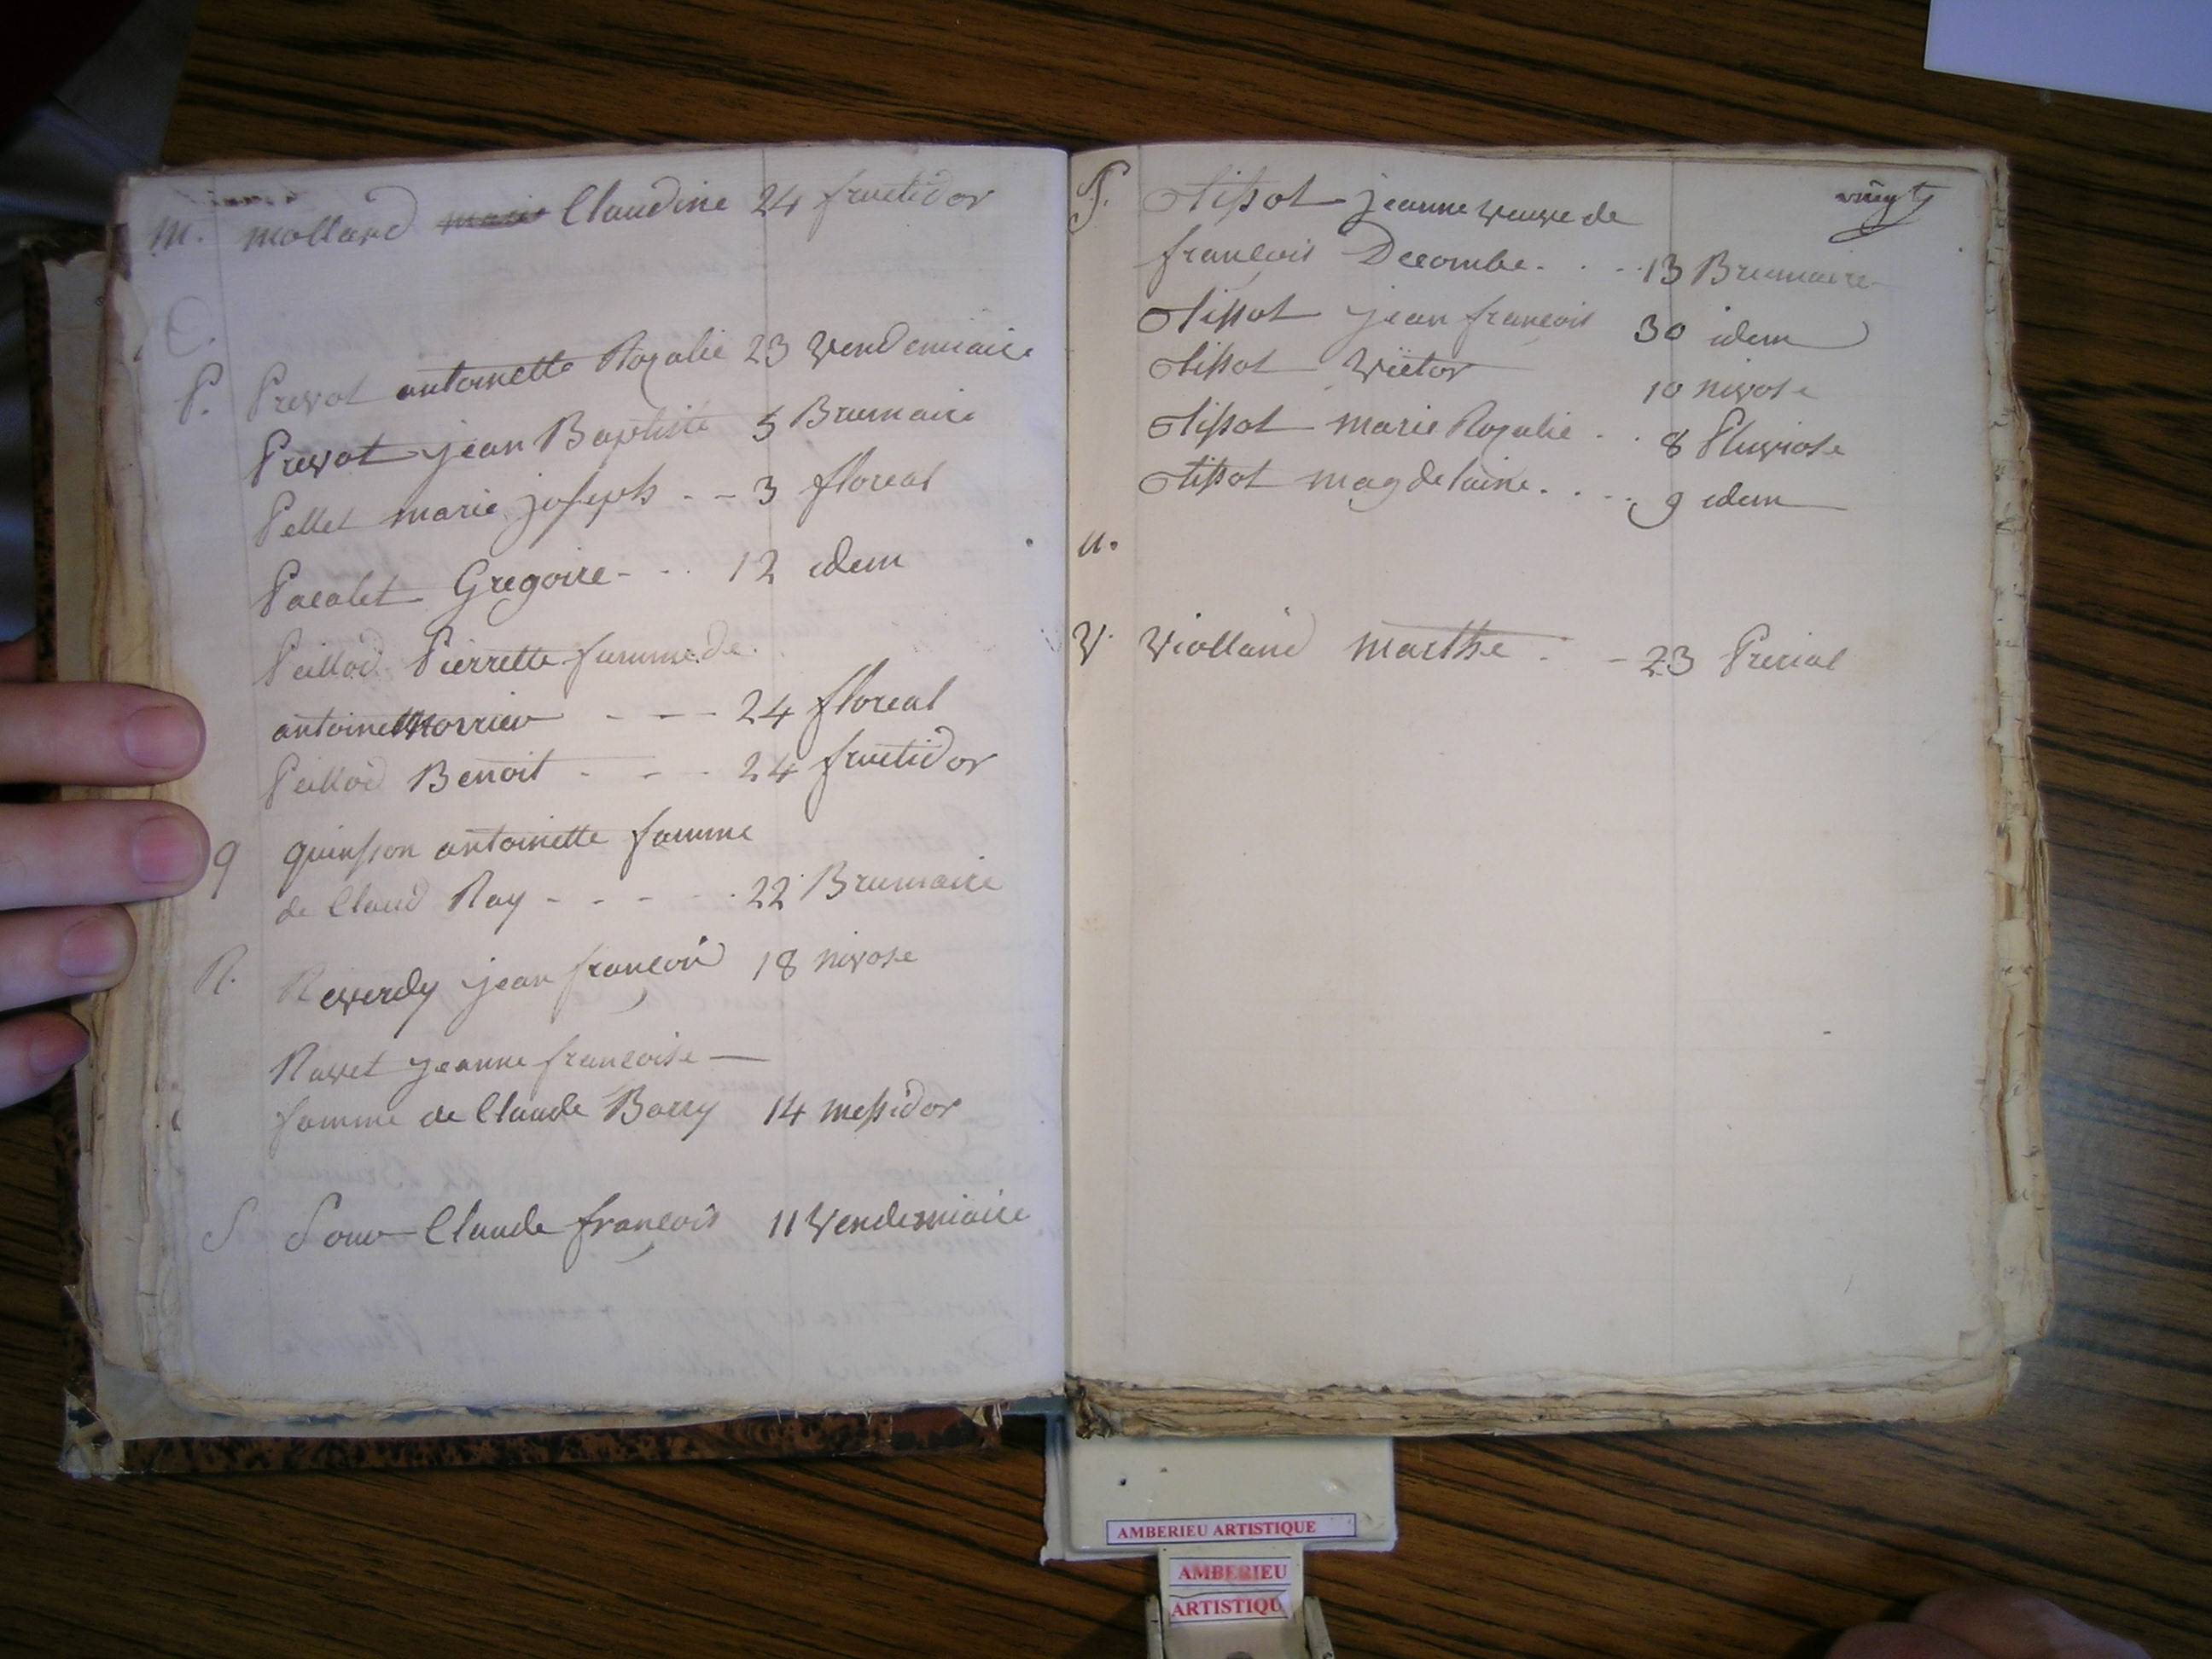 M. mollard marie Claudine 24 fructidor
P. Prevot antoinette Rozalie 23 Vendemiaire
Prevot jean Baptiste 5 Brumaire
Pellet marie joseph - - 3 floreal
Pacalet Gregoire - . . 12 idem
Peillod Pierrette famme de
antoine - - - 24 floreal
Peillod Benoit - - - 24 fructidor
q quinsson antoinette famme
de Claud Ray - - - - . 22 Brumaire
R. Reverdy jean françois 18 nivose
Ravet jeanne francoise —
famme de Claude Borry 14 messidor
S Claude françois 11 Vendemiaire
vingt
T. Tissot jeanne veuve de
françois Decombe . . . 13 Brumaire
Tissot jean francois 30 idem
Tissot Victor 10 nivose
Tissot marie Rozalie . . 8 Pluviose
Tissot magdelaine . . . . 9 idem
u.
V. Violland marthe . - 23 Prerial
AMBERIEU ARTISTIQUE
AMBERIEU
ARTISTIQU